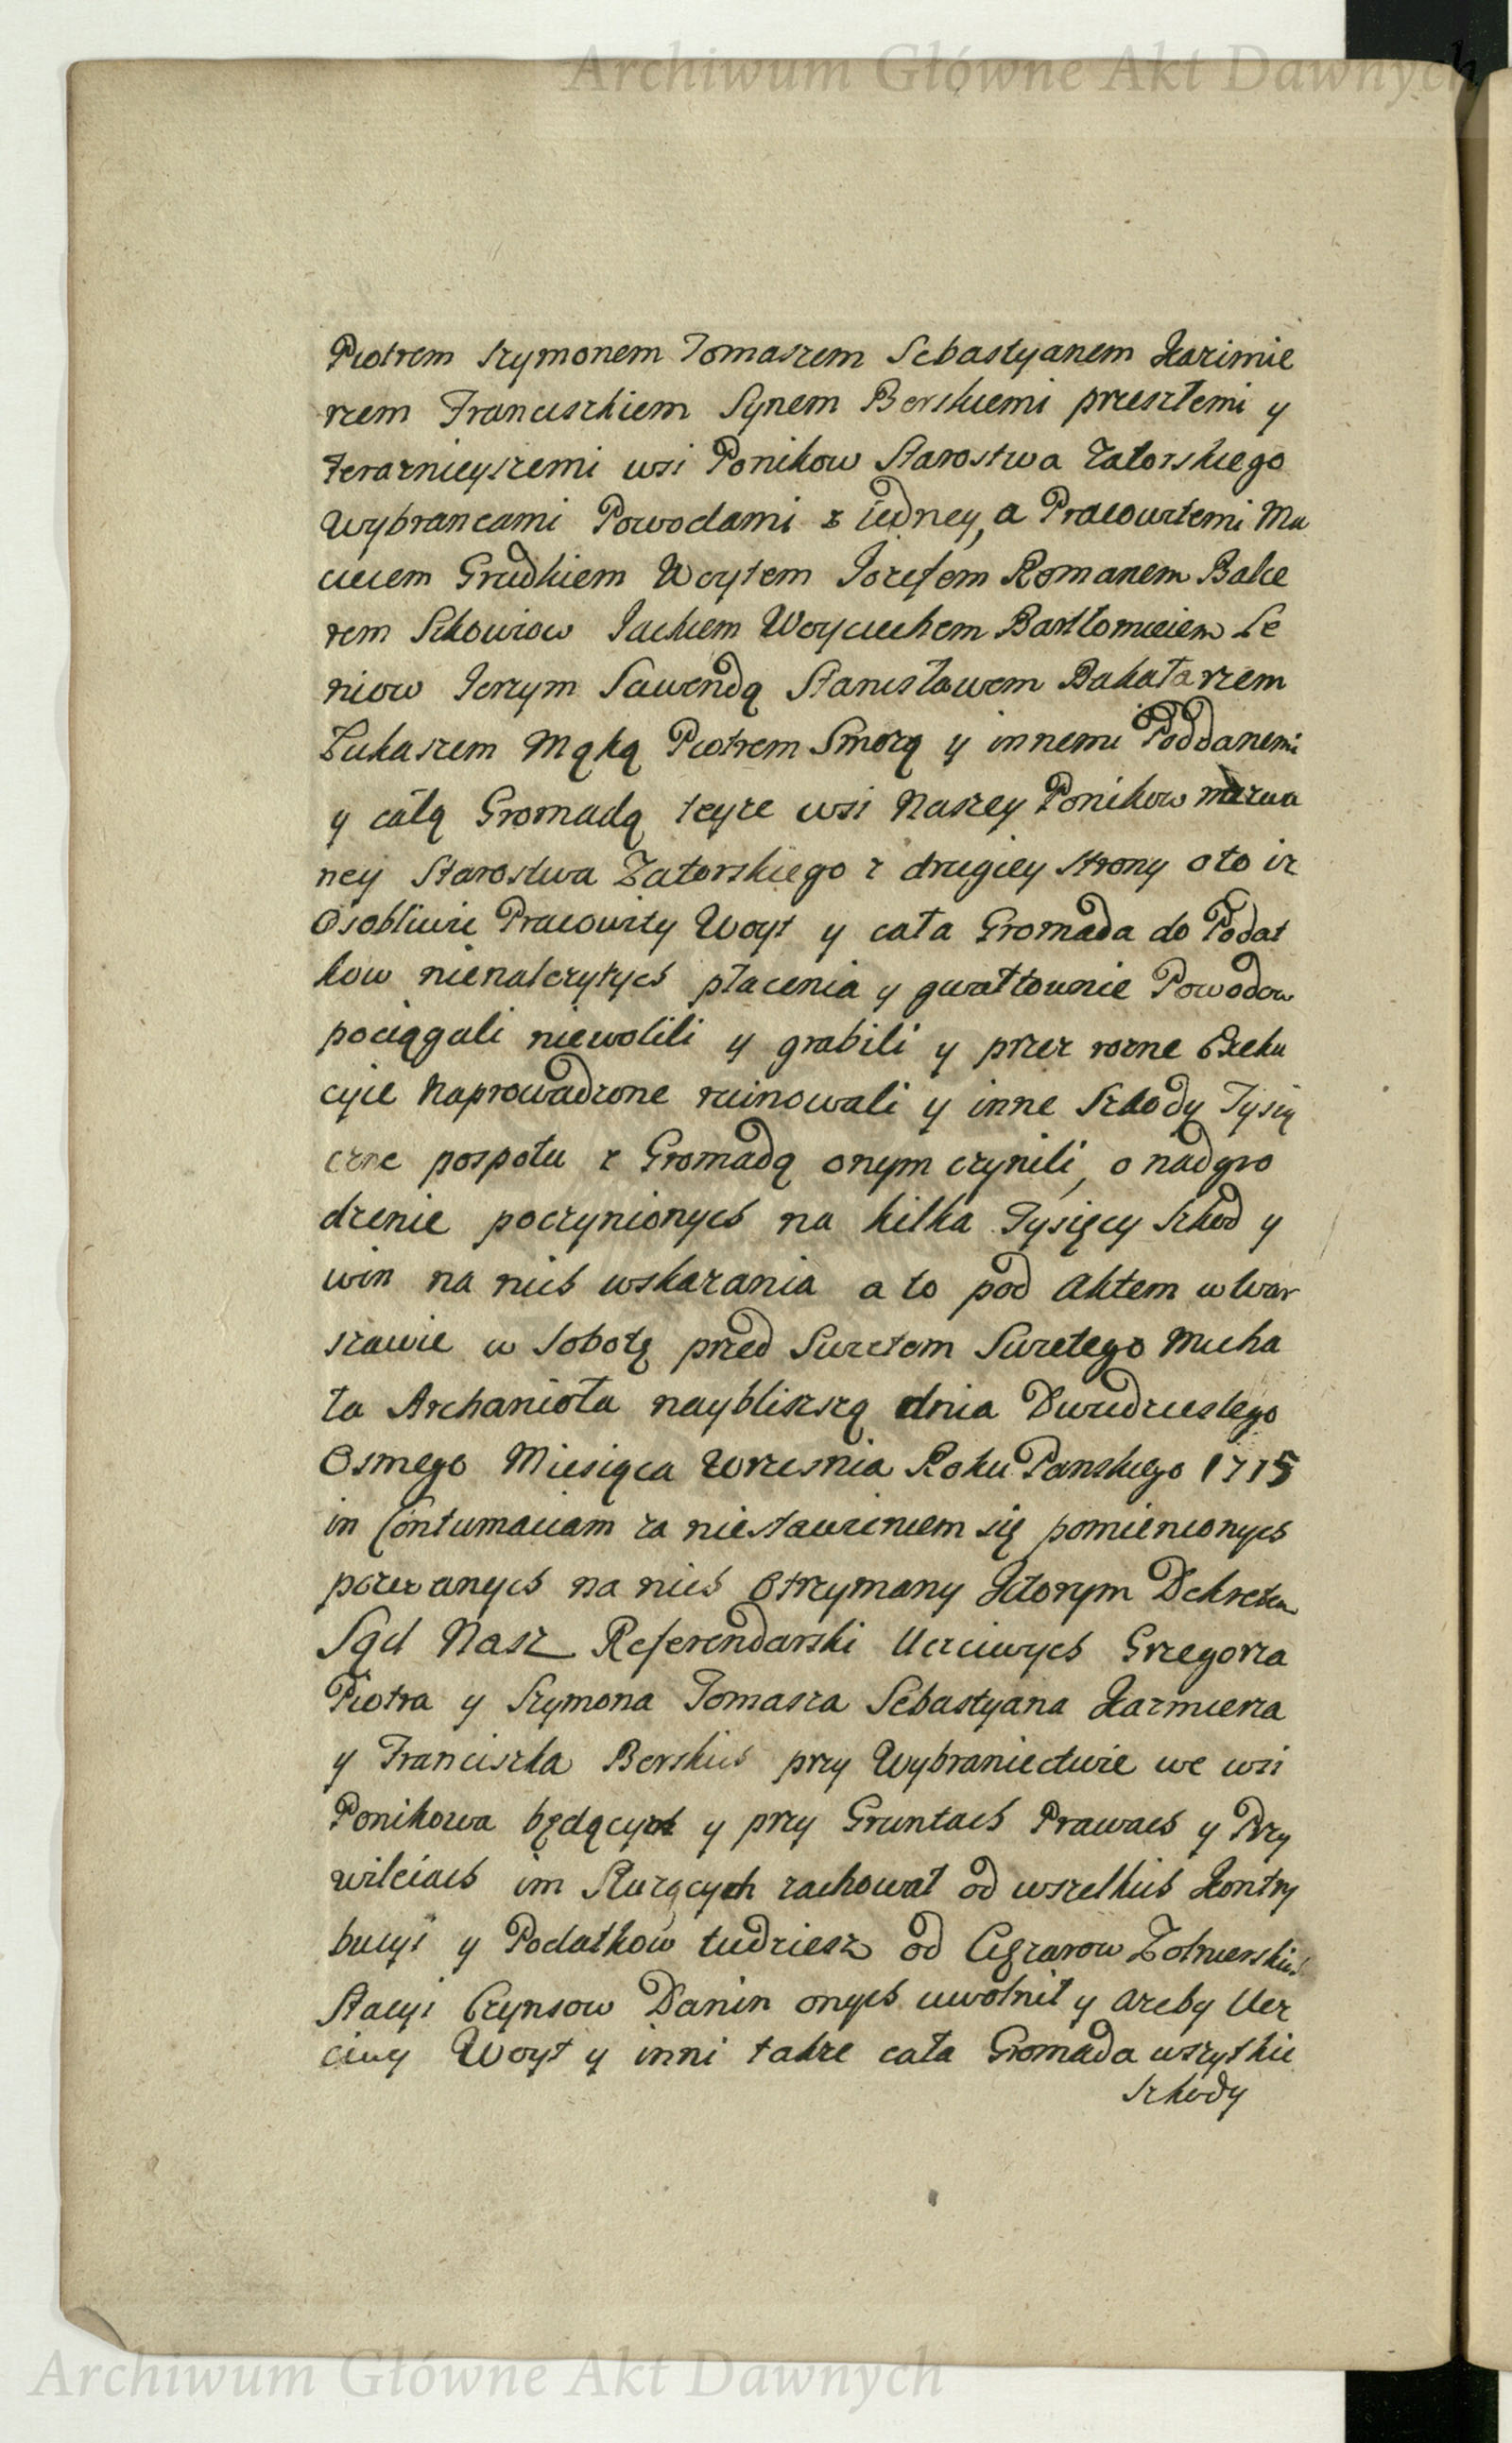 Archiwum Główne Akt Dawnych
Piotrem Szymonem Tomaszem Sebastyanem Kazimie
rzem Franciszkiem Synem Borskiemi przeszłemi y
teraznieyszemi wsi Ponikow Starostwa Zatorskiego
Wybrancami Powodami z iedney, a Pracowitemi Ma
cieiem Grudkiem Woytem Jozefem Romanem Balce
rem Szkowrow Jackiem Woyciechem Bartłomieiem Le
niow Jerzym Sawendą Stanisławem Bakałarzem
Łukaszem Mąką Piotrem Smorą y innemi Poddanemi
y całą Gromadą teyże wsi Naszey Ponikow nazwa
ney Starostwa Zatorskiego z drugiey strony oto iż
Osobliwie Pracowity Woyt y cała Gromada do Podat
kow nienależytych płacenia y gwałtownie Powodow
pociągali niewolili y grabili y przez rozne Exeku
cyie Naprowadzone ruinowali y inne Szkody Tysią
czne pospołu z Gromadą onym czynili, o nadgro
dzenie poczynionych na kilka Tysięcy Szkod y
win na nich wskazania a to pod Aktem w War
szawie w Sobotę przed Swiętem Swiętego Micha
ła Archanioła naybliszszą dnia Dwudziestego
Osmego Miesiąca Wrzesnia Roku Panskiego 1715
in Contumaciam za niestawieniem się pomienionych
pozwanych na nich Otrzymany Ktorym Dekretem
Sąd Nasz Referendarski Uczciwych Grzegorza
Piotra y Szymona Tomasza Sebastyana Kazmierza
y Franciszka Borskich przy Wybraniectwie we wsi
Ponikowa będących y przy Gruntach Prawach y Przy
wileiach im Służących zachował od wszelkich Kontry
bucyi y Podatkow tudziesz od Ciężarow Żołnierskich
Stacyi Czynsow Danin onych uwolnił y Azeby Ucz
ciwy Woyt y inni także cała Gromada wszytkie
Szkody
Archiwum Główne Akt Dawnych